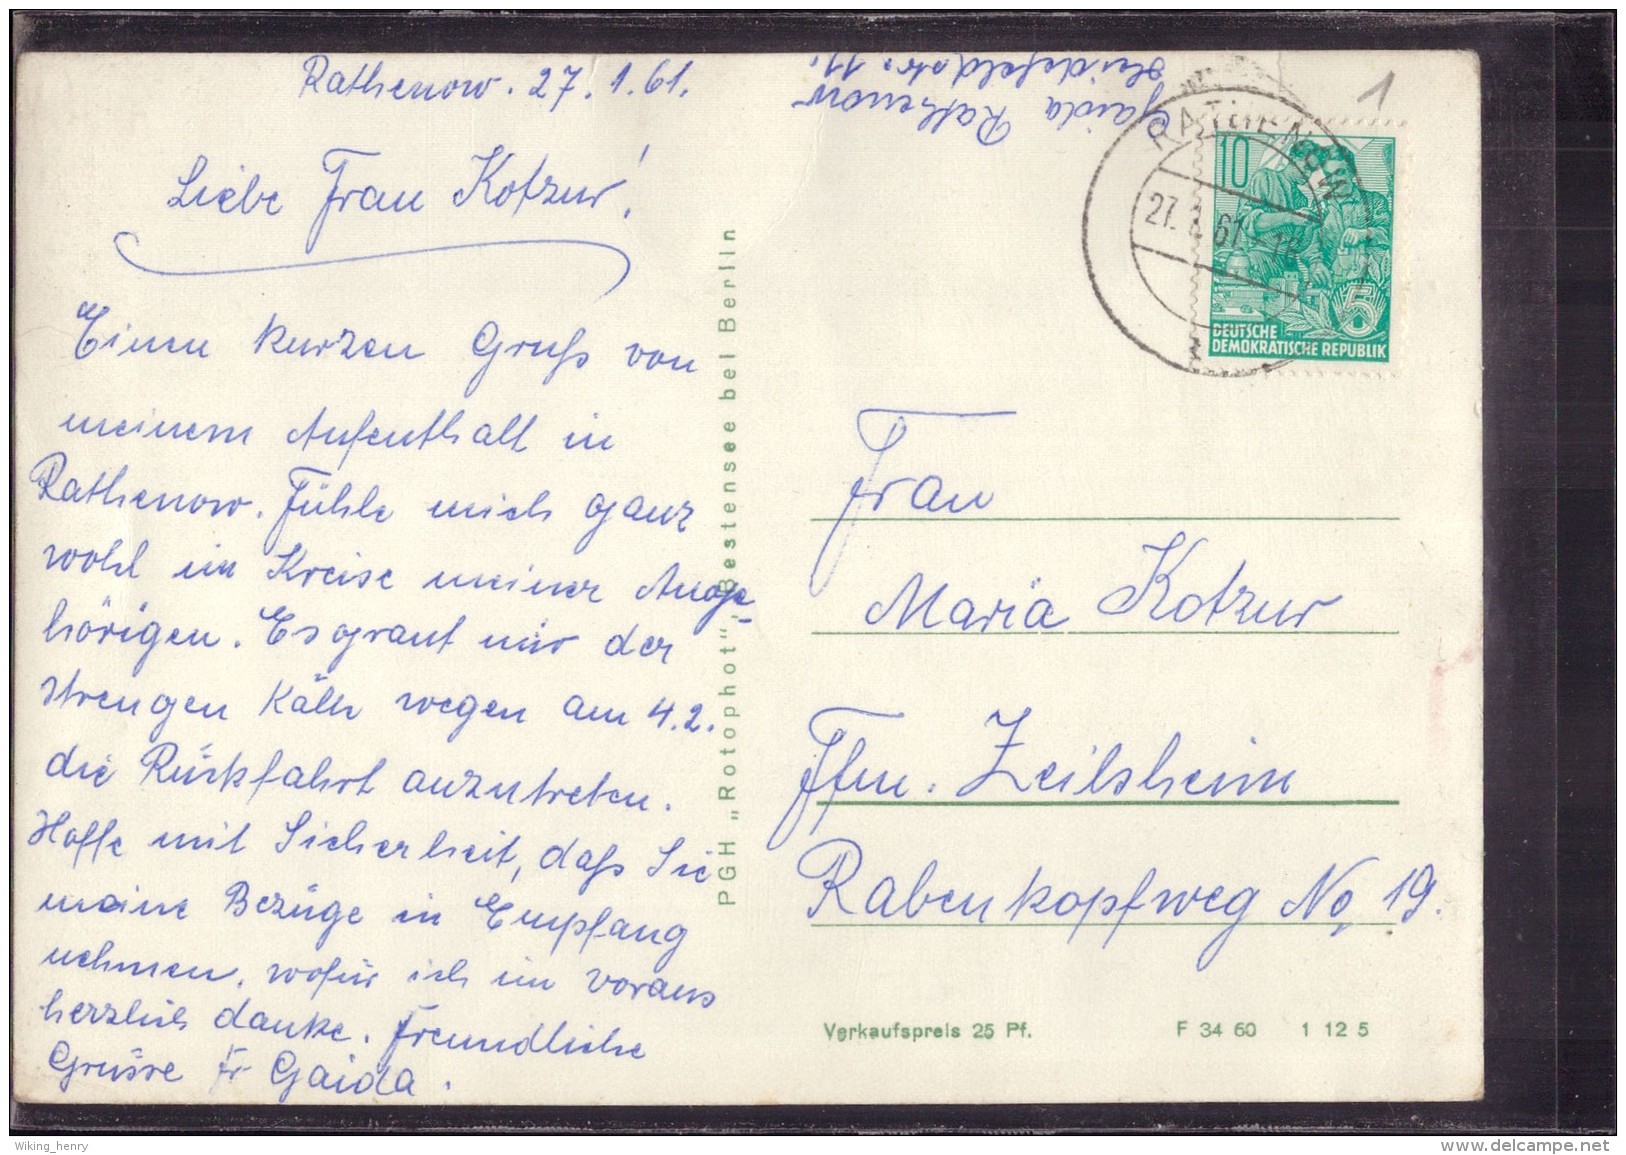 Rathenow. 27.1.61.
Liebe Frau Kotzur!
Einen kurzen Gruß von
meinem Aufenthalt in
Rathenow. Fühle mich ganz
wohl im Kreise meiner Ange-
hörigen. Es graut mir der
strengen Kälte wegen am 4.2.
die Rückfahrt anzutreten.
Hoffe mit Sicherheit, daß Sie
meine Bezüge in Empfang
nehmen, wofür ich im voraus
herzlich danke. Freundliche
Grüsse Fr Gaida.
PGH „Rotophot", Bestensee bei Berlin
Gaida Rathenow
Heidefeldstr. 11.
1
RATHENOW
27. 1. 61
10
5
DEUTSCHE
DEMOKRATISCHE REPUBLIK
Frau
Maria Kotzur
Ffm. Zeilsheim
Rabenkopfweg No 19.
Verkaufspreis 25 Pf. F 34 60 1 12 5
Wiking_henry
www.delcampe.net